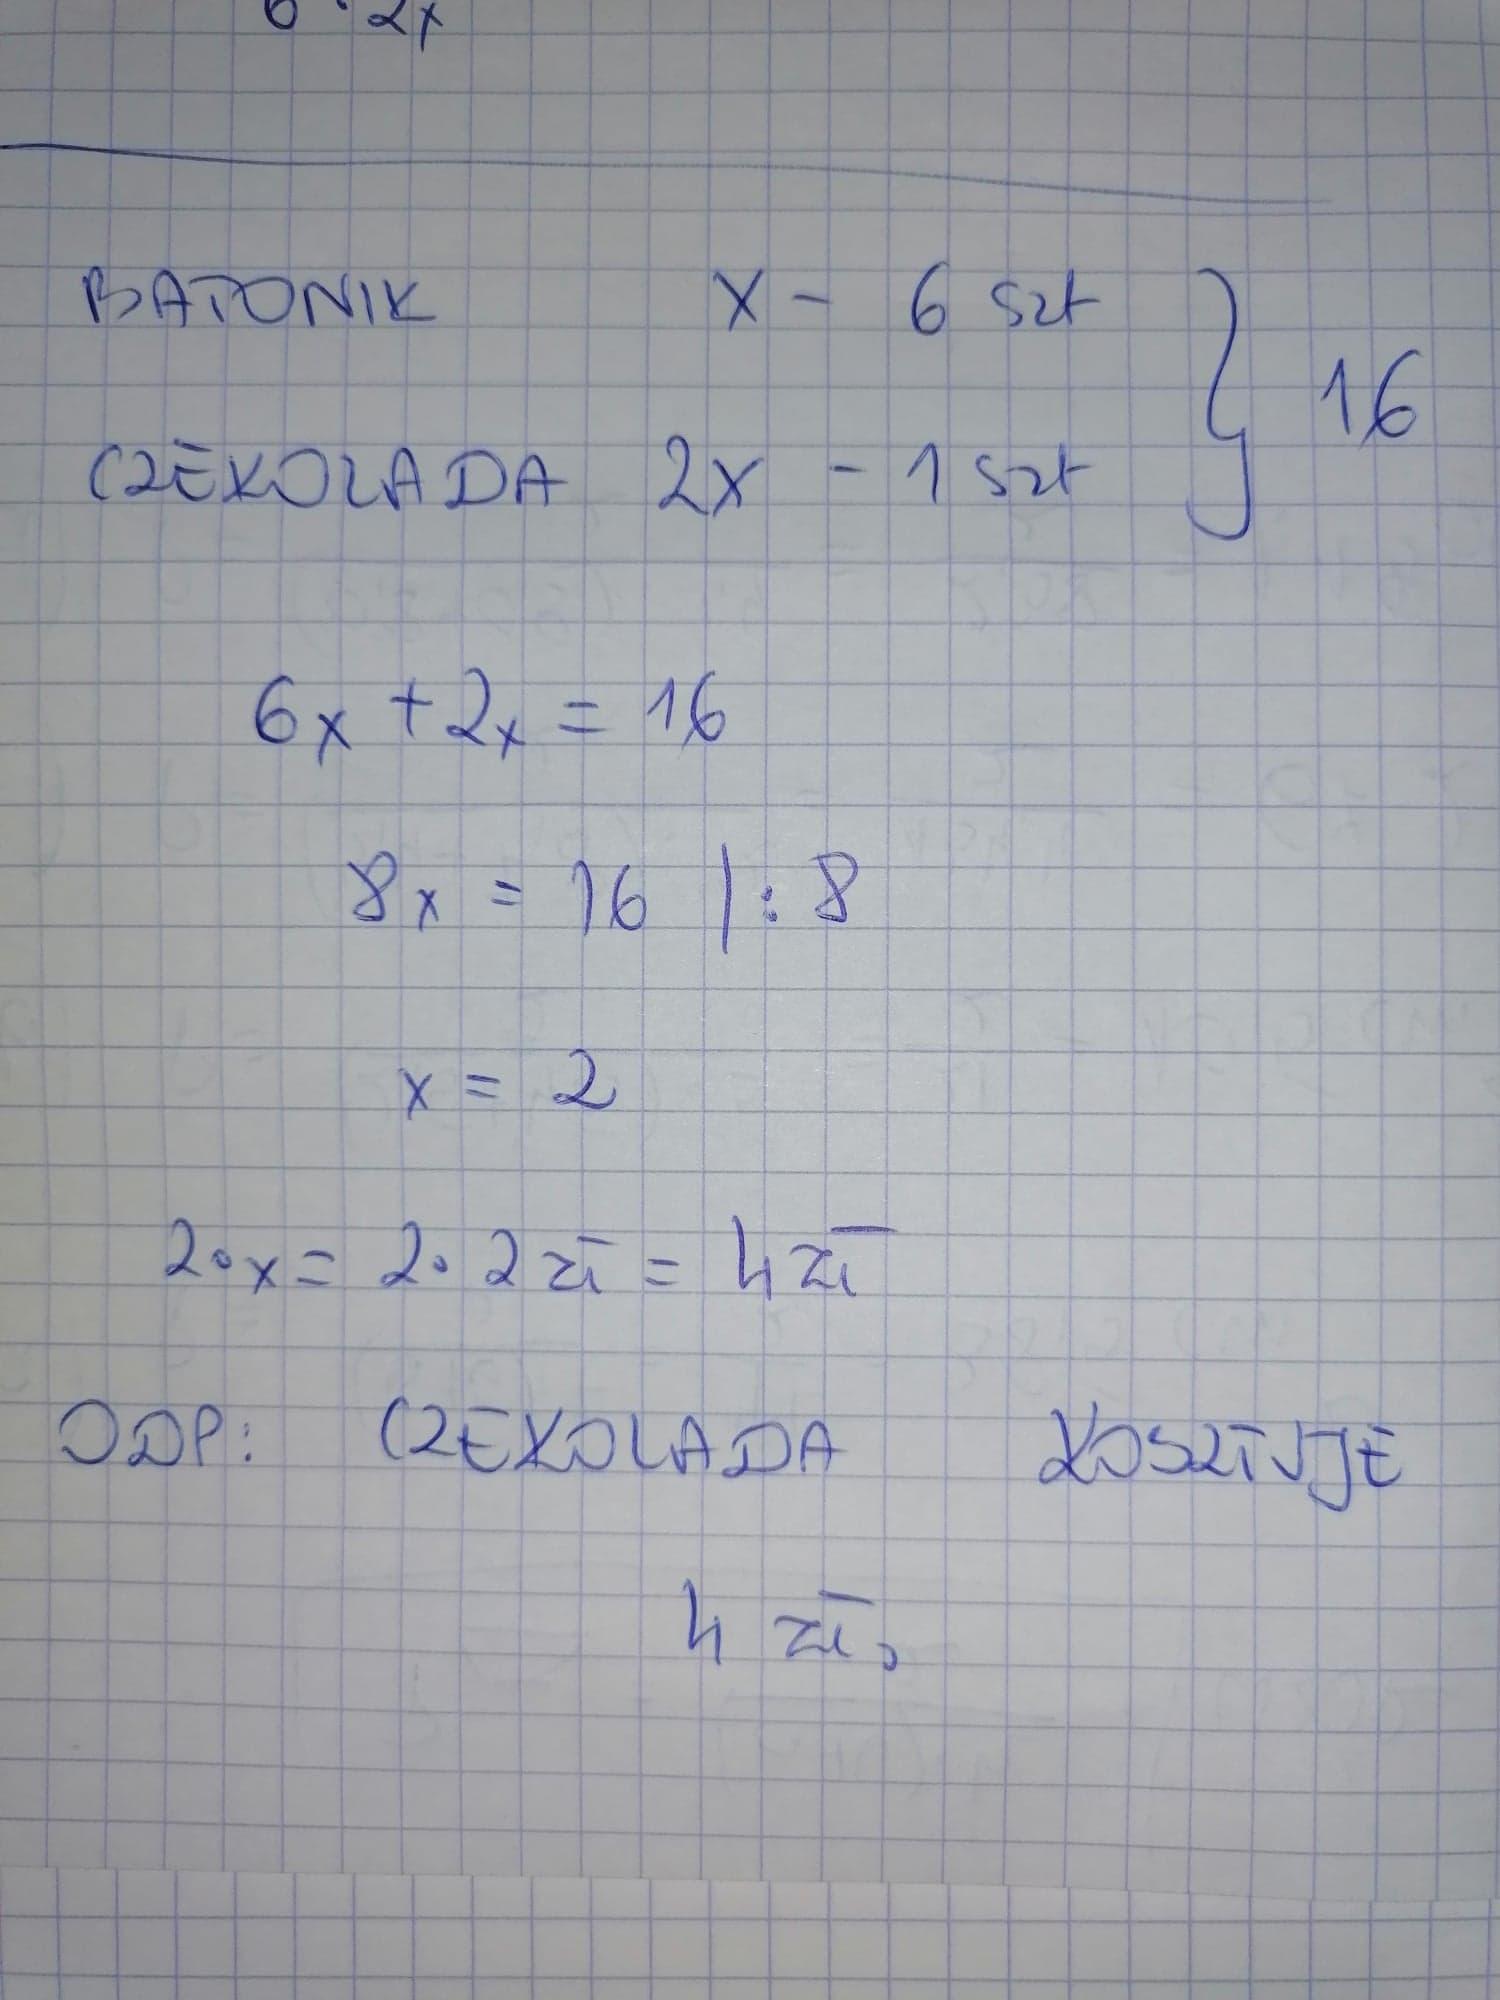 6 · 2x
BATONIK x - 6 szt } 16
CZEKOLADA 2x - 1 szt
6x + 2x = 16
8x = 16 |: 8
x = 2
2·x = 2·2 zł = 4 zł
ODP: CZEKOLADA KOSZTUJE
4 zł.